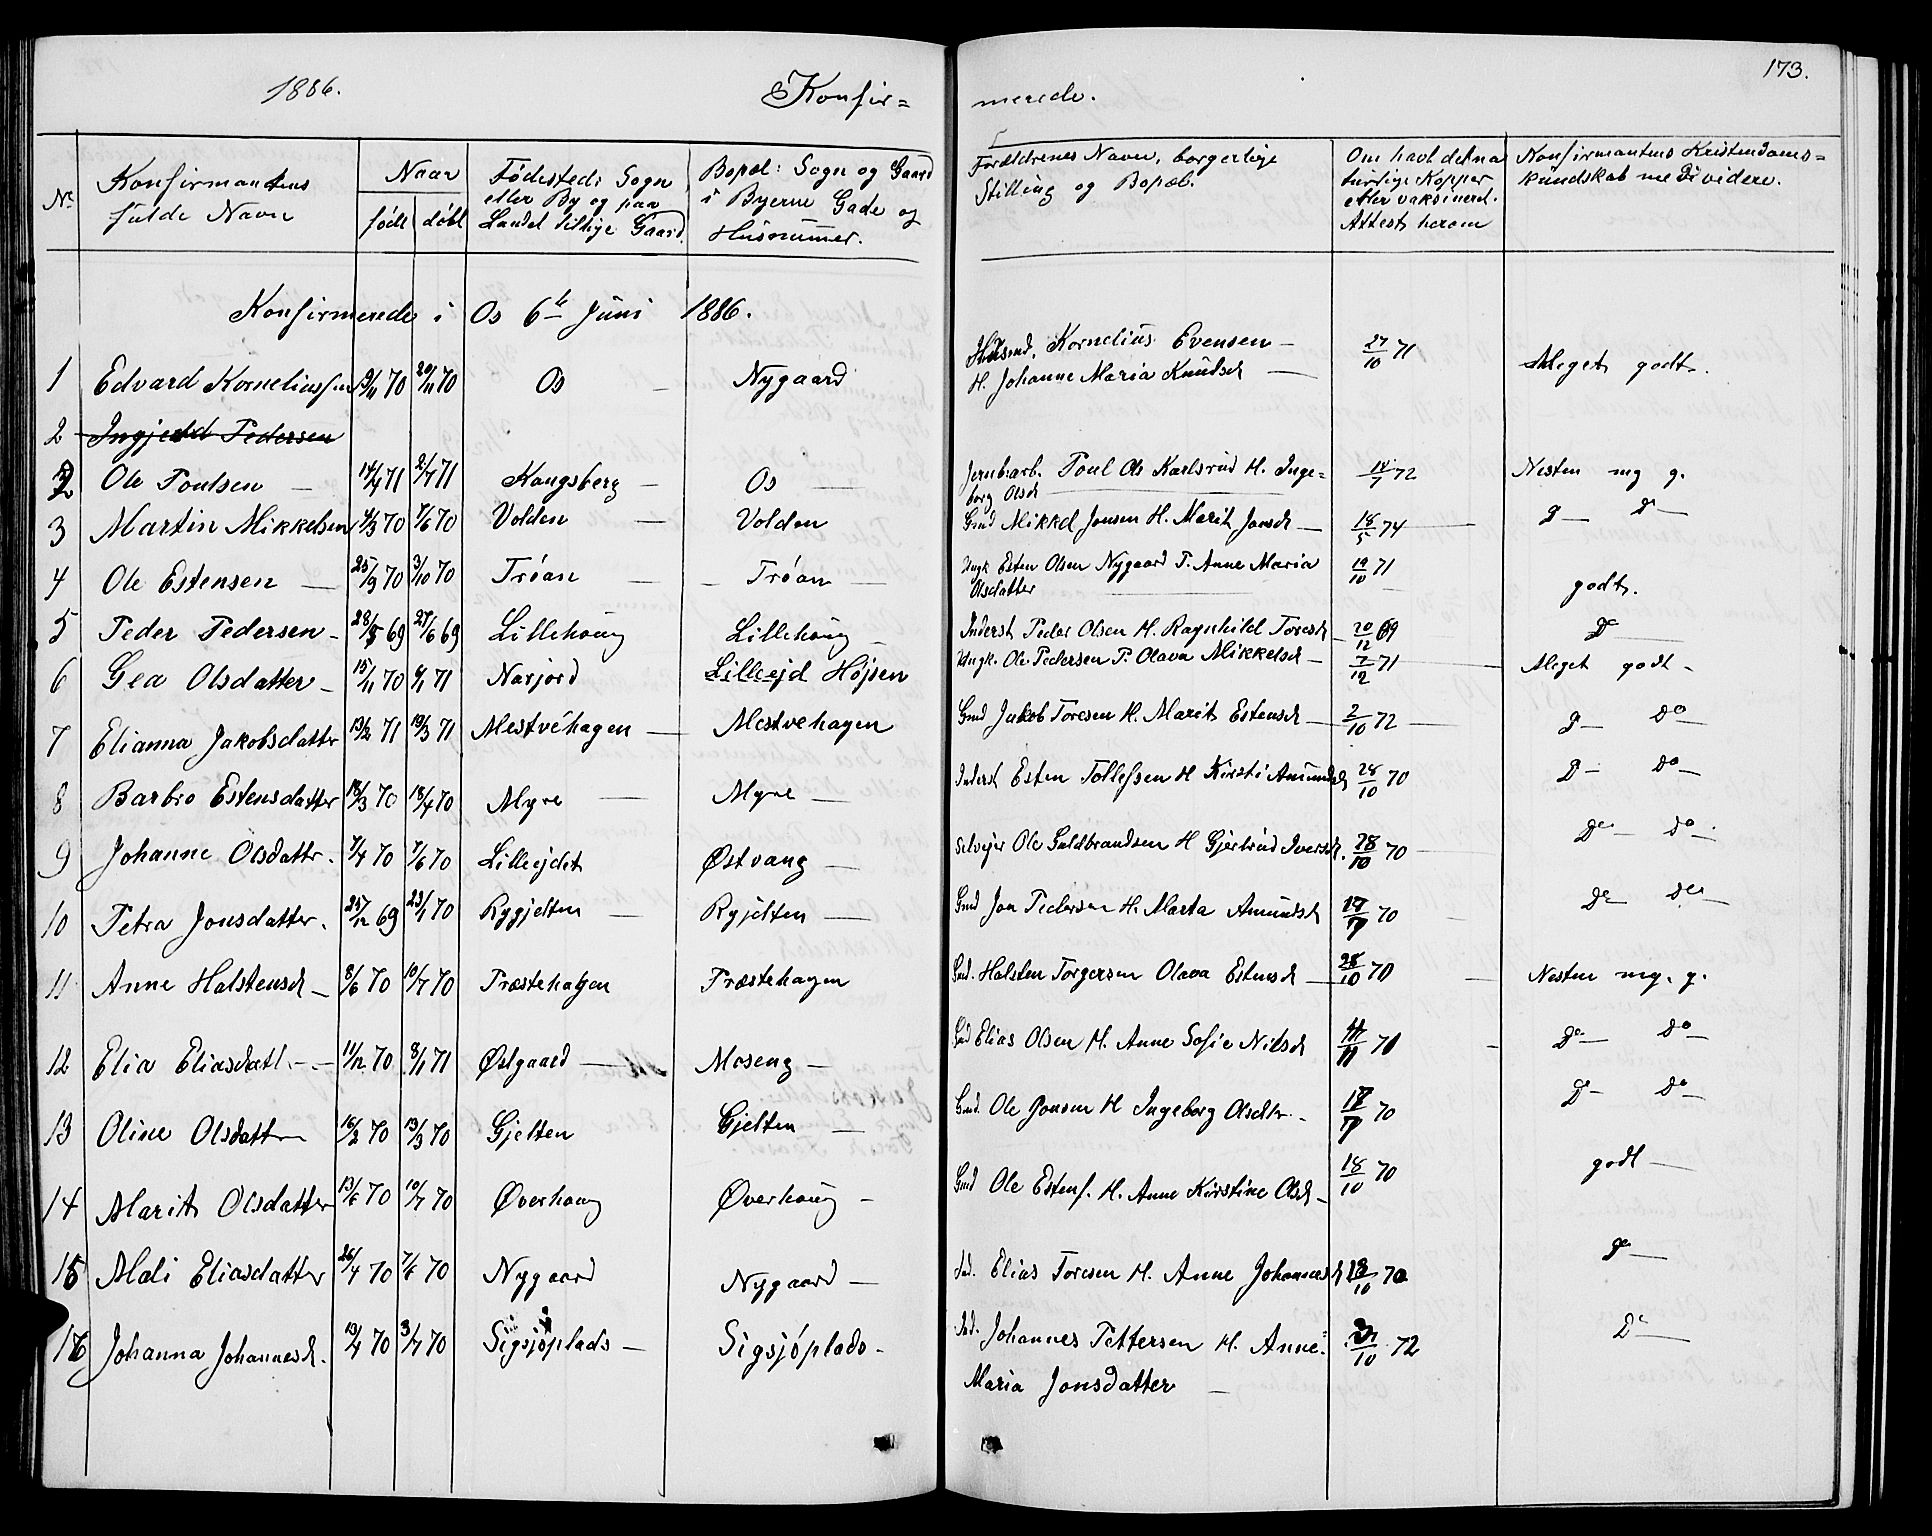 1886.
Konfir=
merede.
173.
No
Konfirmantens
fulde Navn
Naar
født
døbt
Fødested: Sogn
eller By og paa
Landet tillige Gaard.
Bopæl: Sogn og Gaard
i Byerne Gade og
Husnummer.
Forældrenes Navn, borgerlige
Stilling og Bopæl.
Om havt de na
turlige Kopper
eller vaksineret.
Attest herom
Konfirmantens Kristendoms=
kundskab med videre.
Konfirmerede i Os 6te Juni 1886.
1 Edvard Korneliussen 9/11 70 20/11 70 Os — Nygaard Husmd. Kornelius Evensen — 27/10 71 Meget godt.
H. Johanne Maria Knudsd —
2 Ingjeld Pedersen
2 Ole Poulsen — 14/4 71 2/7 71 Kongsberg — Os — Jernbarb. Poul Ols Karlsrud H. Inge= 14/7 72 Nesten mg g.
borg Olsd
3 Martin Mikkelsen 4/3 70 7/6 70 Volden — Volden Gmd Mikkel Jonsen H. Marit Jonsd — 18/5 74 D— Do—
4 Ole Estensen — 25/9 70 3/10 70 Trøan — Trøan — Ungk. Esten Olsen Nygaard P. Anne Maria 19/10 71 godt.
Olsdatter
5 Peder Pedersen — 28/5 69 27/6 69 Lillehoug Lillehoug — Inderst Peder Olsen H. Ragnhild Toresd — 20/12 69 Do—
6 Gea Olsdatter — 15/11 70 6/1 71 Narjord Lilleejd Højsen Ungk. Ole Pedersen P. Olava Mikkelsd — 7/12 71 Meget godt —
7 Elianna Jakobsdattr 13/2 71 19/3 71 Mestvehagen — Mestvehagen Gmd Jakob Toresen H. Marit Estensd — 2/10 72 D— Do—
8 Barbro Estensdatter 13/3 70 18/4 70 Myre — Myre — Inderst Esten Tollefsen H Kirsti Amundsd 28/10 70 D— Do—
9 Johanne Olsdattr. 7/4 70 7/6 70 Lilleejdet Østvang — Selvejer Ole Guldbrandsen H Gjertrud Iversd. 28/10 70 Do— Do—.
10 Petra Jonsdatter. 25/12 69 23/1 70 Rygjelten — Ryjelten — Gmd Jon Pedersen H. Marta Amundsd 17/7 70 Do— Do—
11 Anne Halstensd — 8/6 70 10/7 70 Præstehagen Præstehagen Gmd. Halsten Torgersen Olava Estensd — 28/10 70 Nesten mg. g.
12 Elia Eliasdatt. — 11/12 70 8/1 71 Østgaard — Moseng — Gmd Elias Olsen H. Anne Sofie Nilsd 11/11 71 Do— Do—
13 Oline Olsdatter 16/2 70 13/3 70 Gjelten Gjelten — Gmd. Ole Jonsen H Ingeborg Olsdtr. 18/7 70 Do— Do—
14 Marit Olsdatter 13/6 70 10/7 70 Øverhoug Øverhoug — Gmd Ole Estens. H. Anne Kirstine Olsd — 18/10 70 godt —
15 Mali Eliasdatter 26/4 70 7/6 70 Nygaard Nygaard — Ind. Elias Toresen H. Anne Johannesd 18/10 70 Do—
16 Johanna Johannesd. 19/4 70 3/7 70 Sigsjøplads — Sigsjøplads — Ind. Johannes Pettersen H. Anne 27/10 72 Do—
Maria Jonsdatter —